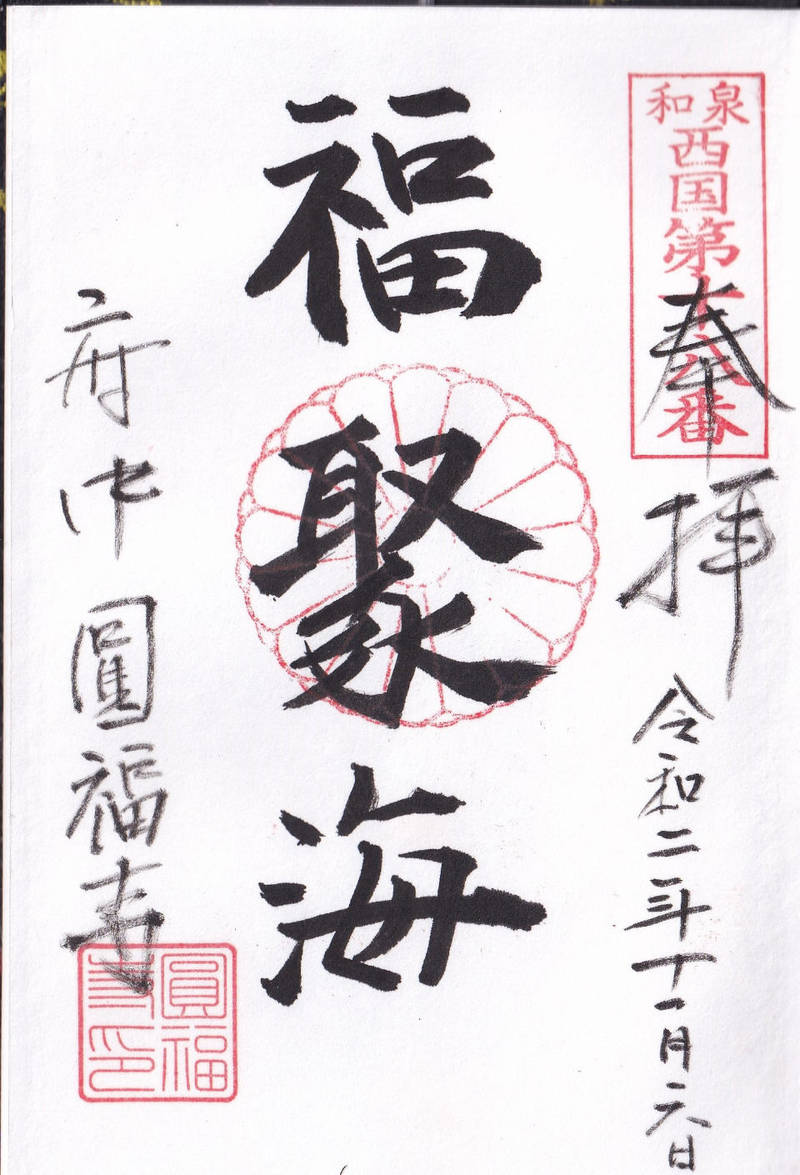 和泉
西国第十八番
奉拝
令和二年十一月六日
福聚海
府中 圓福寺
圓福
寺印